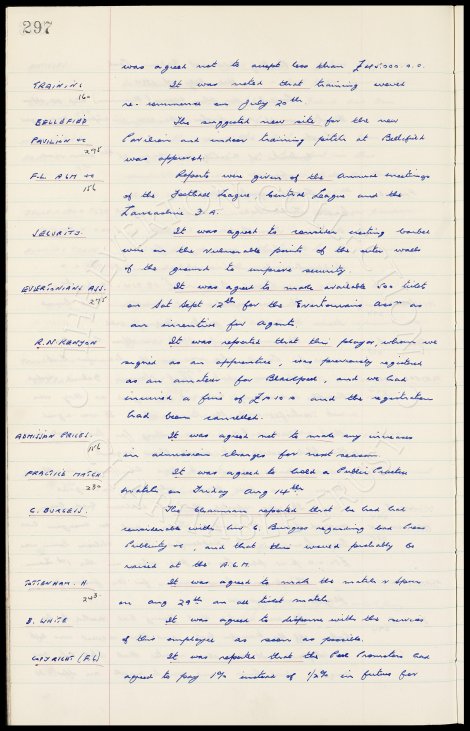 297
was agreed not to accept less than
TRAINING It was noted that training would
160 re-commence on July 20th.
BELLEFIELD The suggested new site for the new
PAVILION &c Pavilion and indoor training pitch at Bellefield
295 was approved.
F.L. AGM &c Reports were given of the Annual meetings
156 of the Football League, Central League and the
Lancashire F.A.
SECURITY. It was agreed to consider erecting barbed
wire on the vulnerable points of the outer walls
of the ground to improve security.
EVERTONIANS ASS. It was agreed to make available 500 tickets
295 on Sat Sept 12th for the Evertonians Assn as
an incentive for agents.
R.N. KENYON It was reported that this player, whom we
signed as an apprentice, was previously registered
as an amateur for Blackpool, and we had
incurred a fine of and the registration
had been cancelled.
ADMISSION PRICES. It was agreed not to make any increase
156 in admission charges for next season.
PRACTICE MATCH. It was agreed to hold a Public Practice
230 match on Friday Aug 14th
C. BURGESS. The Chairman reported that he had had
with C. Burgess regarding bad
Publicity &c, and that this would probably be
raised at the A.G.M.
TOTTENHAM. H. It was agreed to make the match v Spurs
243 on Aug 29th an all ticket match.
B. WHITE It was agreed to dispense with the services
of this employee as soon as possible.
COPYRIGHT (F.L) It was reported that the Pool Promoters had
agreed to pay 1% instead of 1/2% in future for